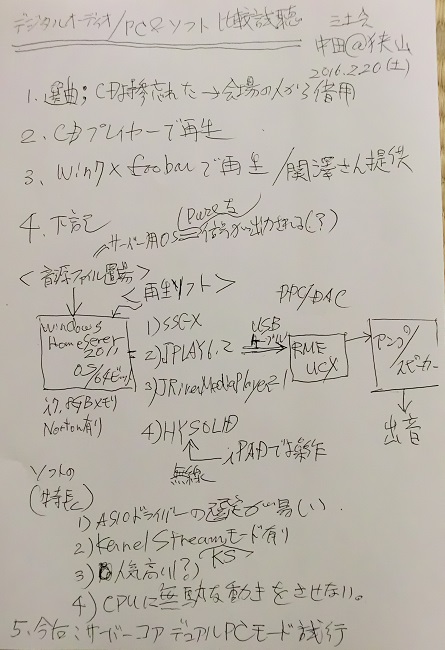 デジタルオーディオ/PC&ソフト 比較試聴
三土会
中田@狭山
2016.2.20(土)
1. 選曲; CDは持参された→会場の人から借用
2. CDプレイヤーで再生
3. Win7×foobarで再生/関澤さん提供
4. 下記
(pureな
サーバー用OS=信号が出力される(?)
<音源ファイル置場>
<再生ソフト>
DDC/DAC
Windows
HomeServer
2011
OS/64ビット
i7, 8GBメモリ
Norton有り
1) SSGX
2) JPLAY6.2
3) JRiverMediaPlayer21
4) HYSOLID
USB
ケーブル
RME
UCX
アンプ/
スピーカー
出音
iPADで操作
無線
ソフトの
(特長)
1) ASIOドライバーの選定が易しい.
2) Kernel Streamモード有り
KS
3) 人気高い(?)
4) CPUに無駄な動きをさせない。
5. 今后:サーバーコア デュアルPCモード試行